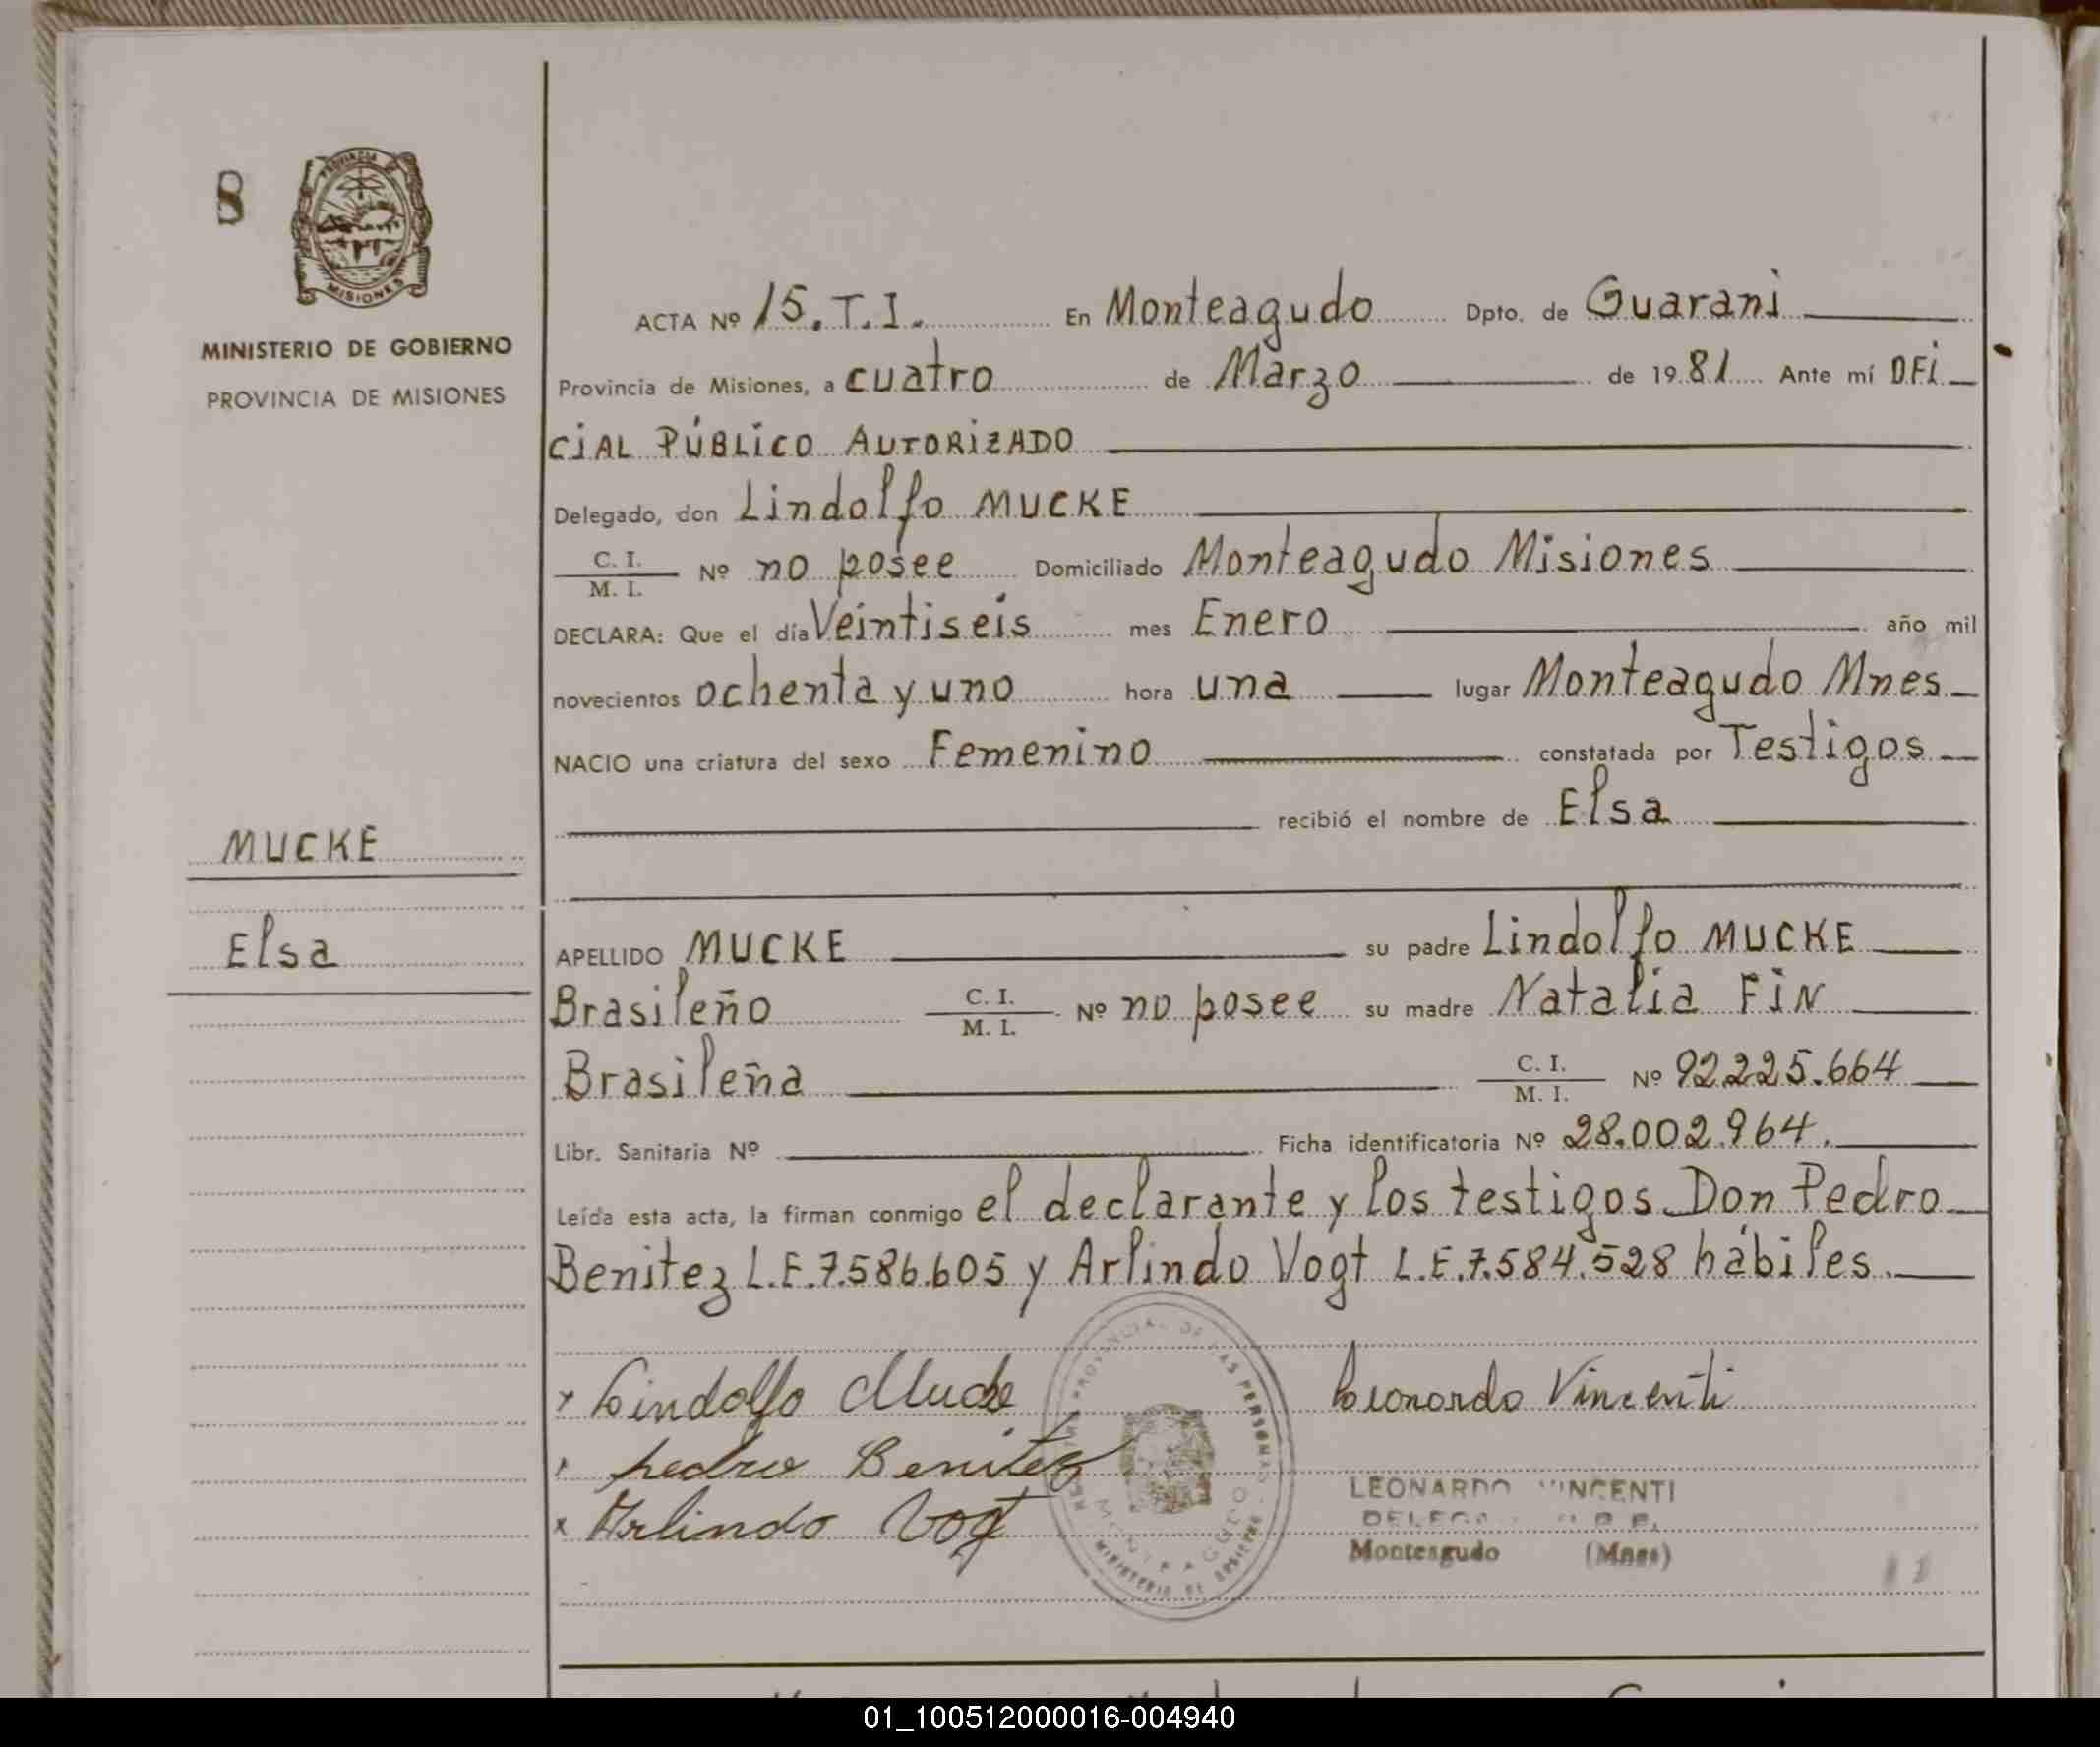 8
PROVINCIA DE
MISIONES
MINISTERIO DE GOBIERNO
PROVINCIA DE MISIONES
MUCKE
Elsa
ACTA Nº 15. T.I. En Monteagudo Dpto. de Guarani
Provincia de Misiones, a cuatro de Marzo de 1981 Ante mí OFi
CiAL PÚBLiCO AUTORiZADO
Delegado, don Lindolfo MUCKE
C. I.
M. I. Nº no posee Domiciliado Monteagudo Misiones
DECLARA: Que el día Veintiseis mes Enero año mil
novecientos ochenta y uno hora una lugar Monteagudo Mnes
NACIO una criatura del sexo Femenino constatada por Testigos
recibió el nombre de Elsa
APELLIDO MUCKE su padre Lindolfo MUCKE
Brasileño C. I. M. I. Nº no posee su madre Natalia FiN
Brasileña C. I. M. I. Nº 92.225.664
Libr. Sanitaria Nº Ficha identificatoria Nº 28.002.964.
Leída esta acta, la firman conmigo el declarante y los testigos Don Pedro
Benitez L.E.7.586.605 y Arlindo Vogt L.E.7.584.528 hábiles.
x Lindolfo Mucke
x pedro Benitez
x Arlindo Vogt
Leonardo Vincenti
PROVINCIAL DE LAS PERSONAS
MONTEAGUDO
MINISTERIO DE GOBIERNO
LEONARDO VINCENTI
Monteagudo (Mnes)
01_100512000016-004940